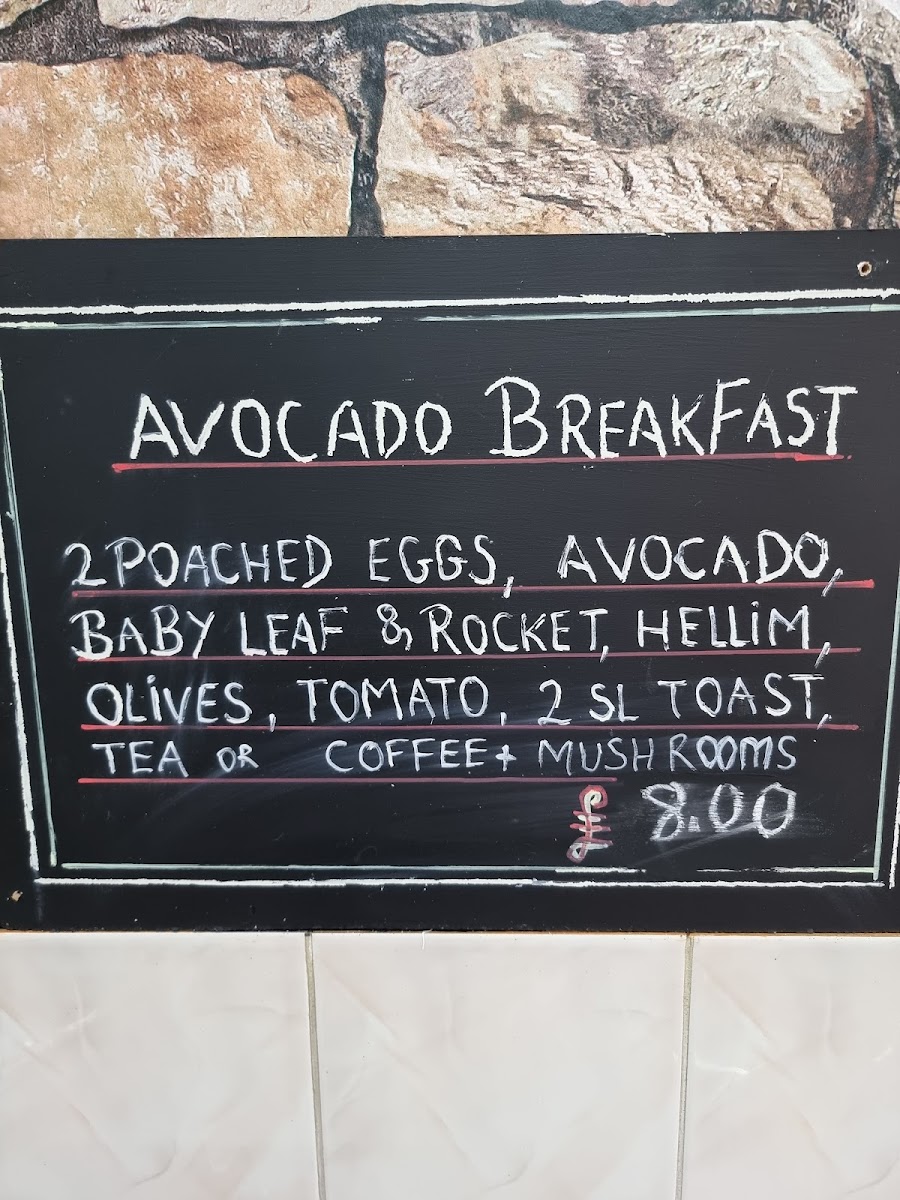 AVOCADO BREAKFAST
2 POACHED EGGS, AVOCADO,
BABY LEAF & ROCKET, HELLiM,
OLiVES, TOMATO, 2 SL TOAST,
TEA OR COFFEE + MUSHROOMS
£ 8.00